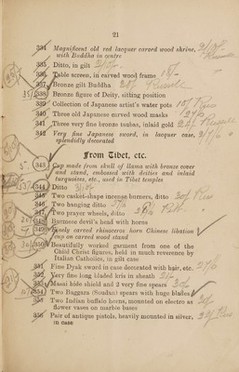 21
334 Magnificent old red lacquer carved wood shrine, with Buddha in centre
335 Ditto, in gilt
336 Table screen, in carved wood frame
337 Bronze gilt Buddha
338 Bronze figure of Deity, sitting position
339 Collection of Japanese artist's water pots
340 Three old Japanese carved wood masks
341 Three very fine bronze tsubas, inlaid gold
342 Very fine Japanese sword, in lacquer case, splendidly decorated
From Tibet, etc.
343 Cup made from skull of Llama with bronze cover
and stand, embossed with deities and inlaid
turquoise, etc., used in Tibet temples
344 Ditto
345 Two casket-shape incense burners, ditto
346 Two hanging ditto
347 Two prayer wheels, ditto
348 Bronze devil's head with horns
349 Finely carved rhinoceros horn Chinese libation
cup on carved wood stand
350 Beautifully worked garment from one of the
Christ figures, held in much reverence by
Italian Catholics, in gilt case
351 Fine Dyak sword in case decorated with hair, etc.
352 Very fine long bladed kris in sheath
353 Masai hide shield and 2 very fine spears
354 Two Baggara (Soudan) spears with huge blades
355 Two Indian buffalo horns, mounted on electro as
flower vases on marble bases
356 Pair of antique pistols, heavily mounted in silver,
in case